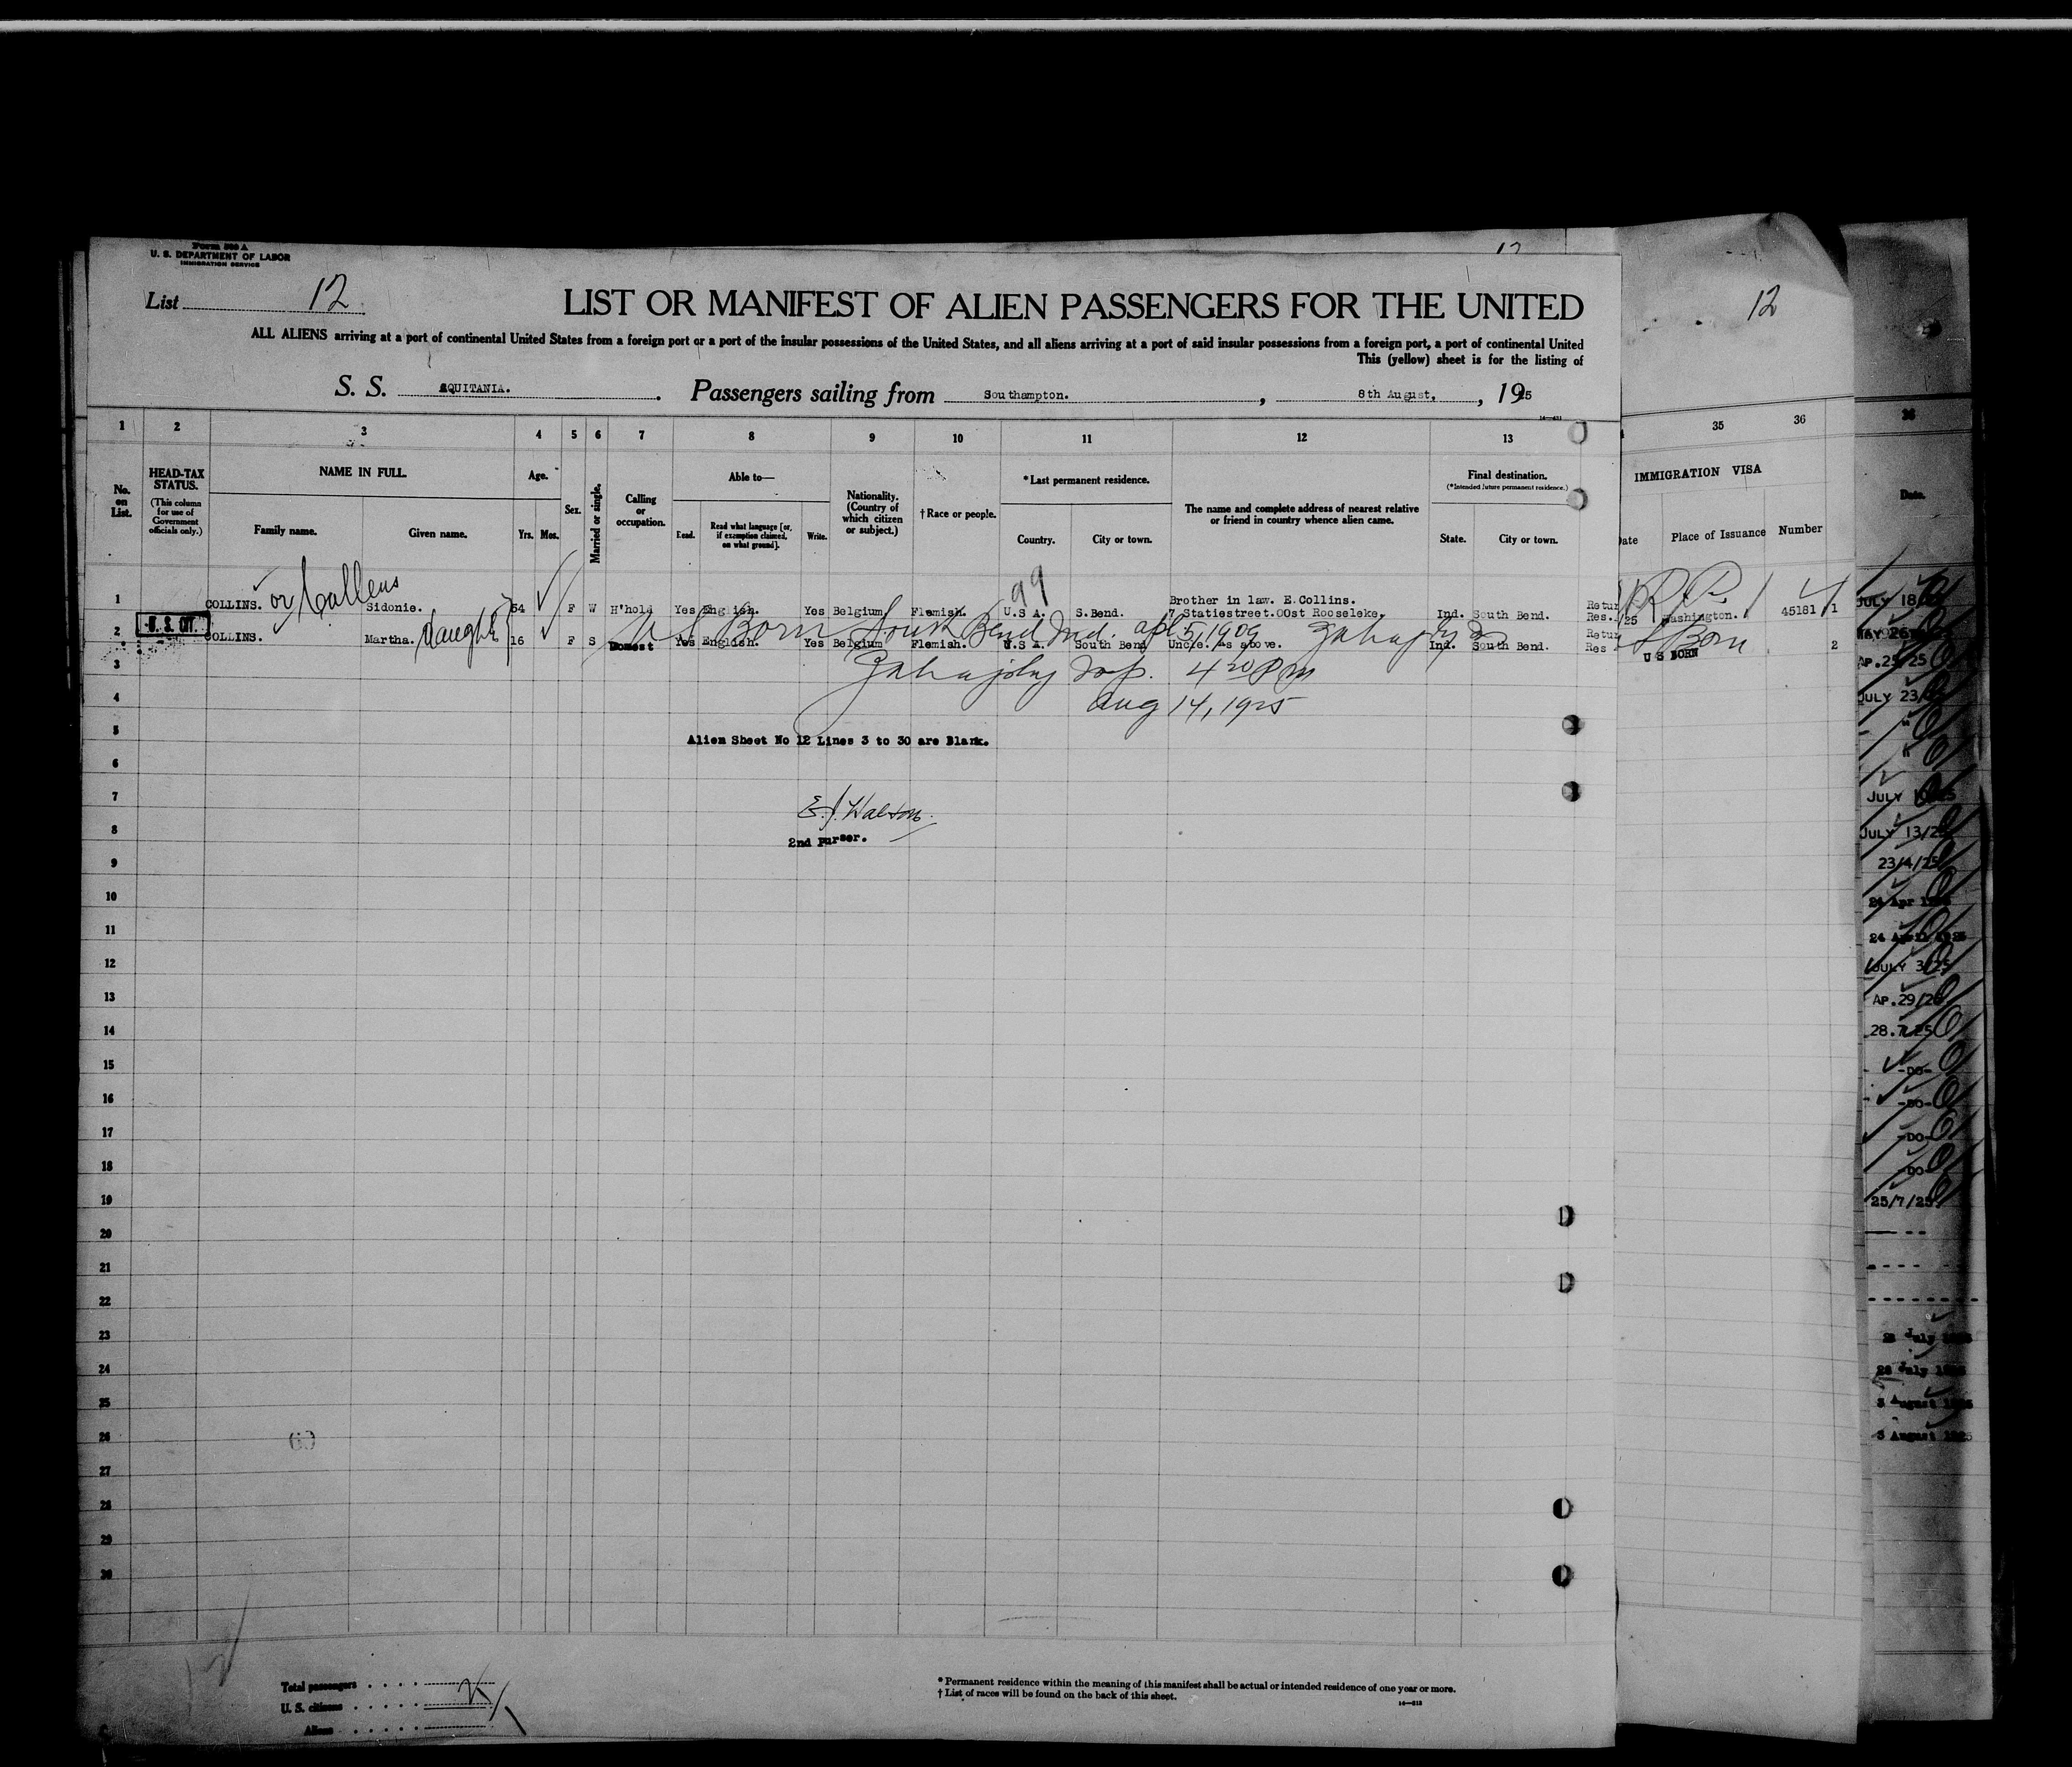 Form 500 A
U. S. DEPARTMENT OF LABOR
IMMIGRATION SERVICE
12
List 12
12
LIST OR MANIFEST OF ALIEN PASSENGERS FOR THE UNITED
ALL ALIENS arriving at a port of continental United States from a foreign port or a port of the insular possessions of the United States, and all aliens arriving at a port of said insular possessions from a foreign port, a port of continental United
This (yellow) sheet is for the listing of
S. S. AQUITANIA. Passengers sailing from Southampton. , 8th August, , 1925
1 2 3 4 5 6 7 8 9 10 11 12 13 35 36 36
No. on List.
HEAD-TAX STATUS.
(This column for use of Government officials only.)
NAME IN FULL.
Family name. Given name.
Age.
Yrs. Mos.
Sex.
Married or single.
Calling or occupation.
Able to—
Read. Read what language [or, if exemption claimed, on what ground]. Write.
Nationality. (Country of which citizen or subject.)
†Race or people.
*Last permanent residence.
Country. City or town.
The name and complete address of nearest relative or friend in country whence alien came.
Final destination.
(*Intended future permanent residence.)
State. City or town.
IMMIGRATION VISA
Date Place of Issuance Number
Date.
99
1 COLLINS. or Callens Sidonie. 54 F W H'hold Yes English. Yes Belgium. Flemish. U.S A. S.Bend. Brother in law. E.Collins. 7 Statiestreet.OOst Rooseleke. Ind. South Bend. Retur Res. /25 Washington. 45181 1
U. S. CIT.
U S Born South Bend Ind. apl 5, 1909
2 COLLINS. Martha. Daught 16 F S Domest Yes English. Yes Belgium Flemish. U.S A. South Bend Uncle. As above. Ind. South Bend. Retur Res U S BORN 2
3
4 20 P m
4
Aug 14, 1925
5
Alien Sheet No 12 Lines 3 to 30 are Blank.
6
7
E. J. Walson
8
2nd Purser.
9
10
11
12
13
14
15
16
17
18
19
20
21
22
23
24
25
26
27
28
29
30
JULY 18
MAY 26
AP.25/25
JULY 23/
"
"
JULY 10
JULY 13/25
23/4/25
24 Apr
24 April 1925
JULY 3/25
AP.29/25
28.7.25
-DO-
-DO-
-DO-
-DO-
25/7/25
July
28 July
August
5 August 1925
Total passengers
U. S. citizens
Aliens
* Permanent residence within the meaning of this manifest shall be actual or intended residence of one year or more.
† List of races will be found on the back of this sheet.